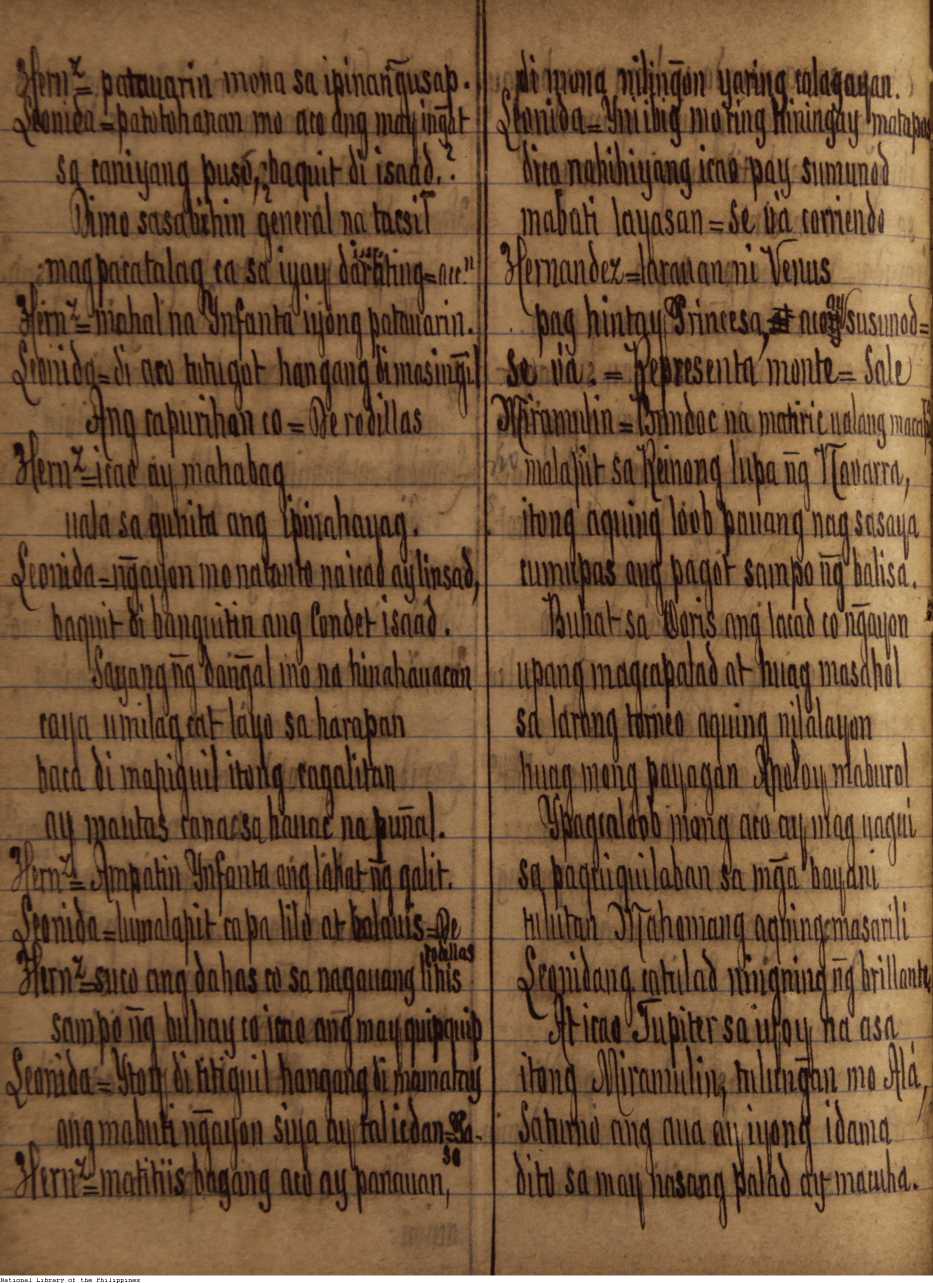 Hernz= patauarin mona sa ipinañgusap.
Leonida=patotohanan mo aco ang may ingat
sa caniyang puso,? baquit di isaad.?
Dimo sasabihin general na tacsil
magpacatalag ca sa iyay darating=acn
Hernz=mahal na Ynfanta iyong patauarin.
Leonida=di aco tutugot hangang dimasiñgil
Ang capurihan co=De rodillas
Hernz=icao ay mahabag
uala sa gunita ang ipinahayag.
Leonida=ñgayon mo natanto na icao ay linsad,
baquit di banguitin ang Condet isaad.
Sayang ñg dañgal mo na hinahauacan
caya umilag cat layo sa harapan
baca di mapiguil itong cagalitan
ay mantas canacsa hauac na puñal.
Hernz= Ampatin Ynfanta ang lahat ñg galit.
Leonida=lumalapit ca pa lilo at balauis=De
rodillas
Hernz=suco ang dahas co sa nagauang lihis
sampo ñg buhay co icao ang may quipquip
Leonida=Ytoy di titiguil hangang di mamatay
ang mabuti ñgayon siya ay talicdan=Va-
se
Hernz=matitiis bagang aco ay panauan,
di mong nilingon yaring calagayan.
Leonida=Yniibig moring hiningay matapos
dica nahihiyang icao pay sumunod
mabuti layasan=Se va corriendo
Hernandez=larauan ni Venus
pag hintay Princesa, acoy susunod=
se va.=Representa monte=Sale
Miramulin=Bundoc na matiric ualang
malapit sa Reinong lupa ñg Navarra,
itong aquing loob pauang nag sasaya
cumupas ang pagot sampo ñg balisa.
Buhat sa Doris ang lacad co ñgayon
upang magcapalad at huag masahol
sa larong torneo aquing nilalayon
huag mong payagan Apoloy maburol
Ypagcaloob mong aco ay mag uagui
sa paquiquilaban sa mga bayani
tulutan Mahomang aquing masarili
Leonidang catulad ningning ñg brillante,
At icao Jupiter sa iyoy na asa
itong Miramulin, tulungan mo Alá,
Saturno ang aua ay iyong idama
dito sa may hasang palad ay macuha.
National Library of the Philippines